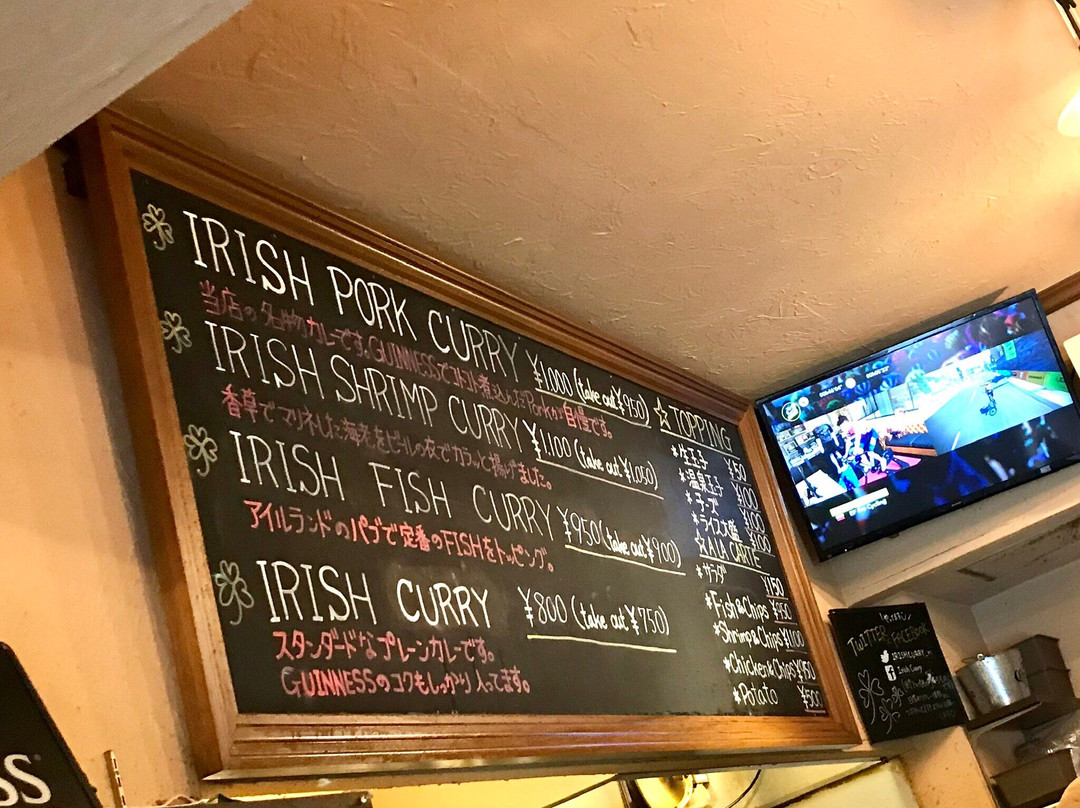 IRISH PORK CURRY ¥1000 (take out ¥950)
当店の名物カレーです。GUINNESSでコトコト煮込んだPorkが自慢です。
IRISH SHRIMP CURRY ¥1,100 (take out ¥1,050)
香草でマリネした海老をビールの衣でカラッと揚げました。
IRISH FISH CURRY ¥950 (take out ¥900)
アイルランドのパブで定番のFISHをトッピング。
IRISH CURRY ¥800 (take out ¥750)
スタンダードなプレーンカレーです。
GUINNESSのコクもしっかり入ってます。
☆TOPPING
*生玉子 ¥50
*温泉玉子 ¥100
*チーズ ¥100
*ライス大盛 ¥100
☆A LA CARTE
*サラダ ¥150
*Fish&Chips ¥950
*Shrimp&Chips ¥1100
*Chicken&Chips ¥950
*Potato ¥500
TWITTER FACEBOOK
IRISHCURRY
Irish Curry
SS